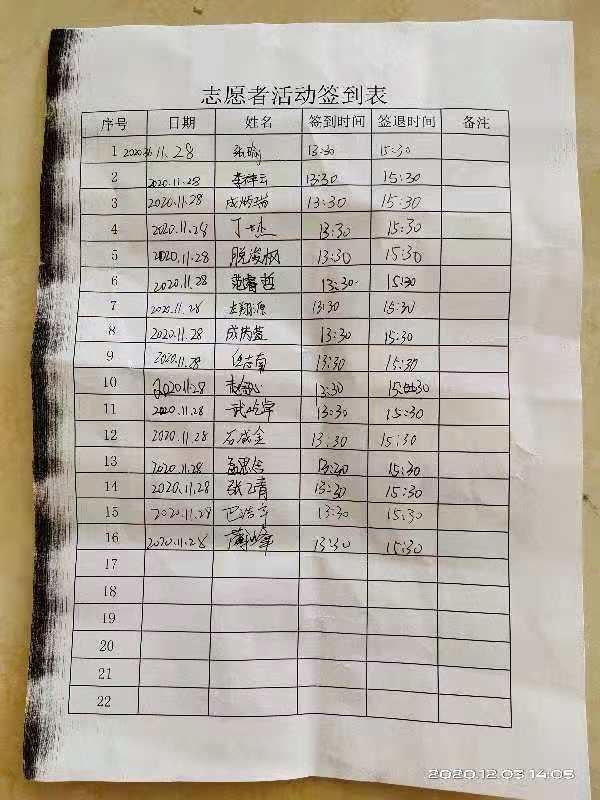 志愿者活动签到表
序号 日期 姓名 签到时间 签退时间 备注
1 11.28 张瑜 13:30 15:30
2 2020.11.28 李梓云 13:30 15:30
3 2020.11.28 13:30 15:30
4 2020.11.28 丁一杰 13:30 15:30
5 2020.11.28 13:30 15:30
6 2020.11.28 范睿哲 13:30 15:30
7 2020.11.28 13:30 15:30
8 2020.11.28 13:30 15:30
9 2020.11.28 13:30 15:30
10 2020.11.28 13:30 15:30
11 2020.11.28 13:30 15:30
12 2020.11.28 石成金 13:30 15:30
13 2020.11.28 孟思含 13:30 15:30
14 2020.11.28 张乙青 13:30 15:30
15 2020.11.28 13:30 15:30
16 2020.11.28 13:30 15:30
17
18
19
20
21
22
2020.12.03 14:05